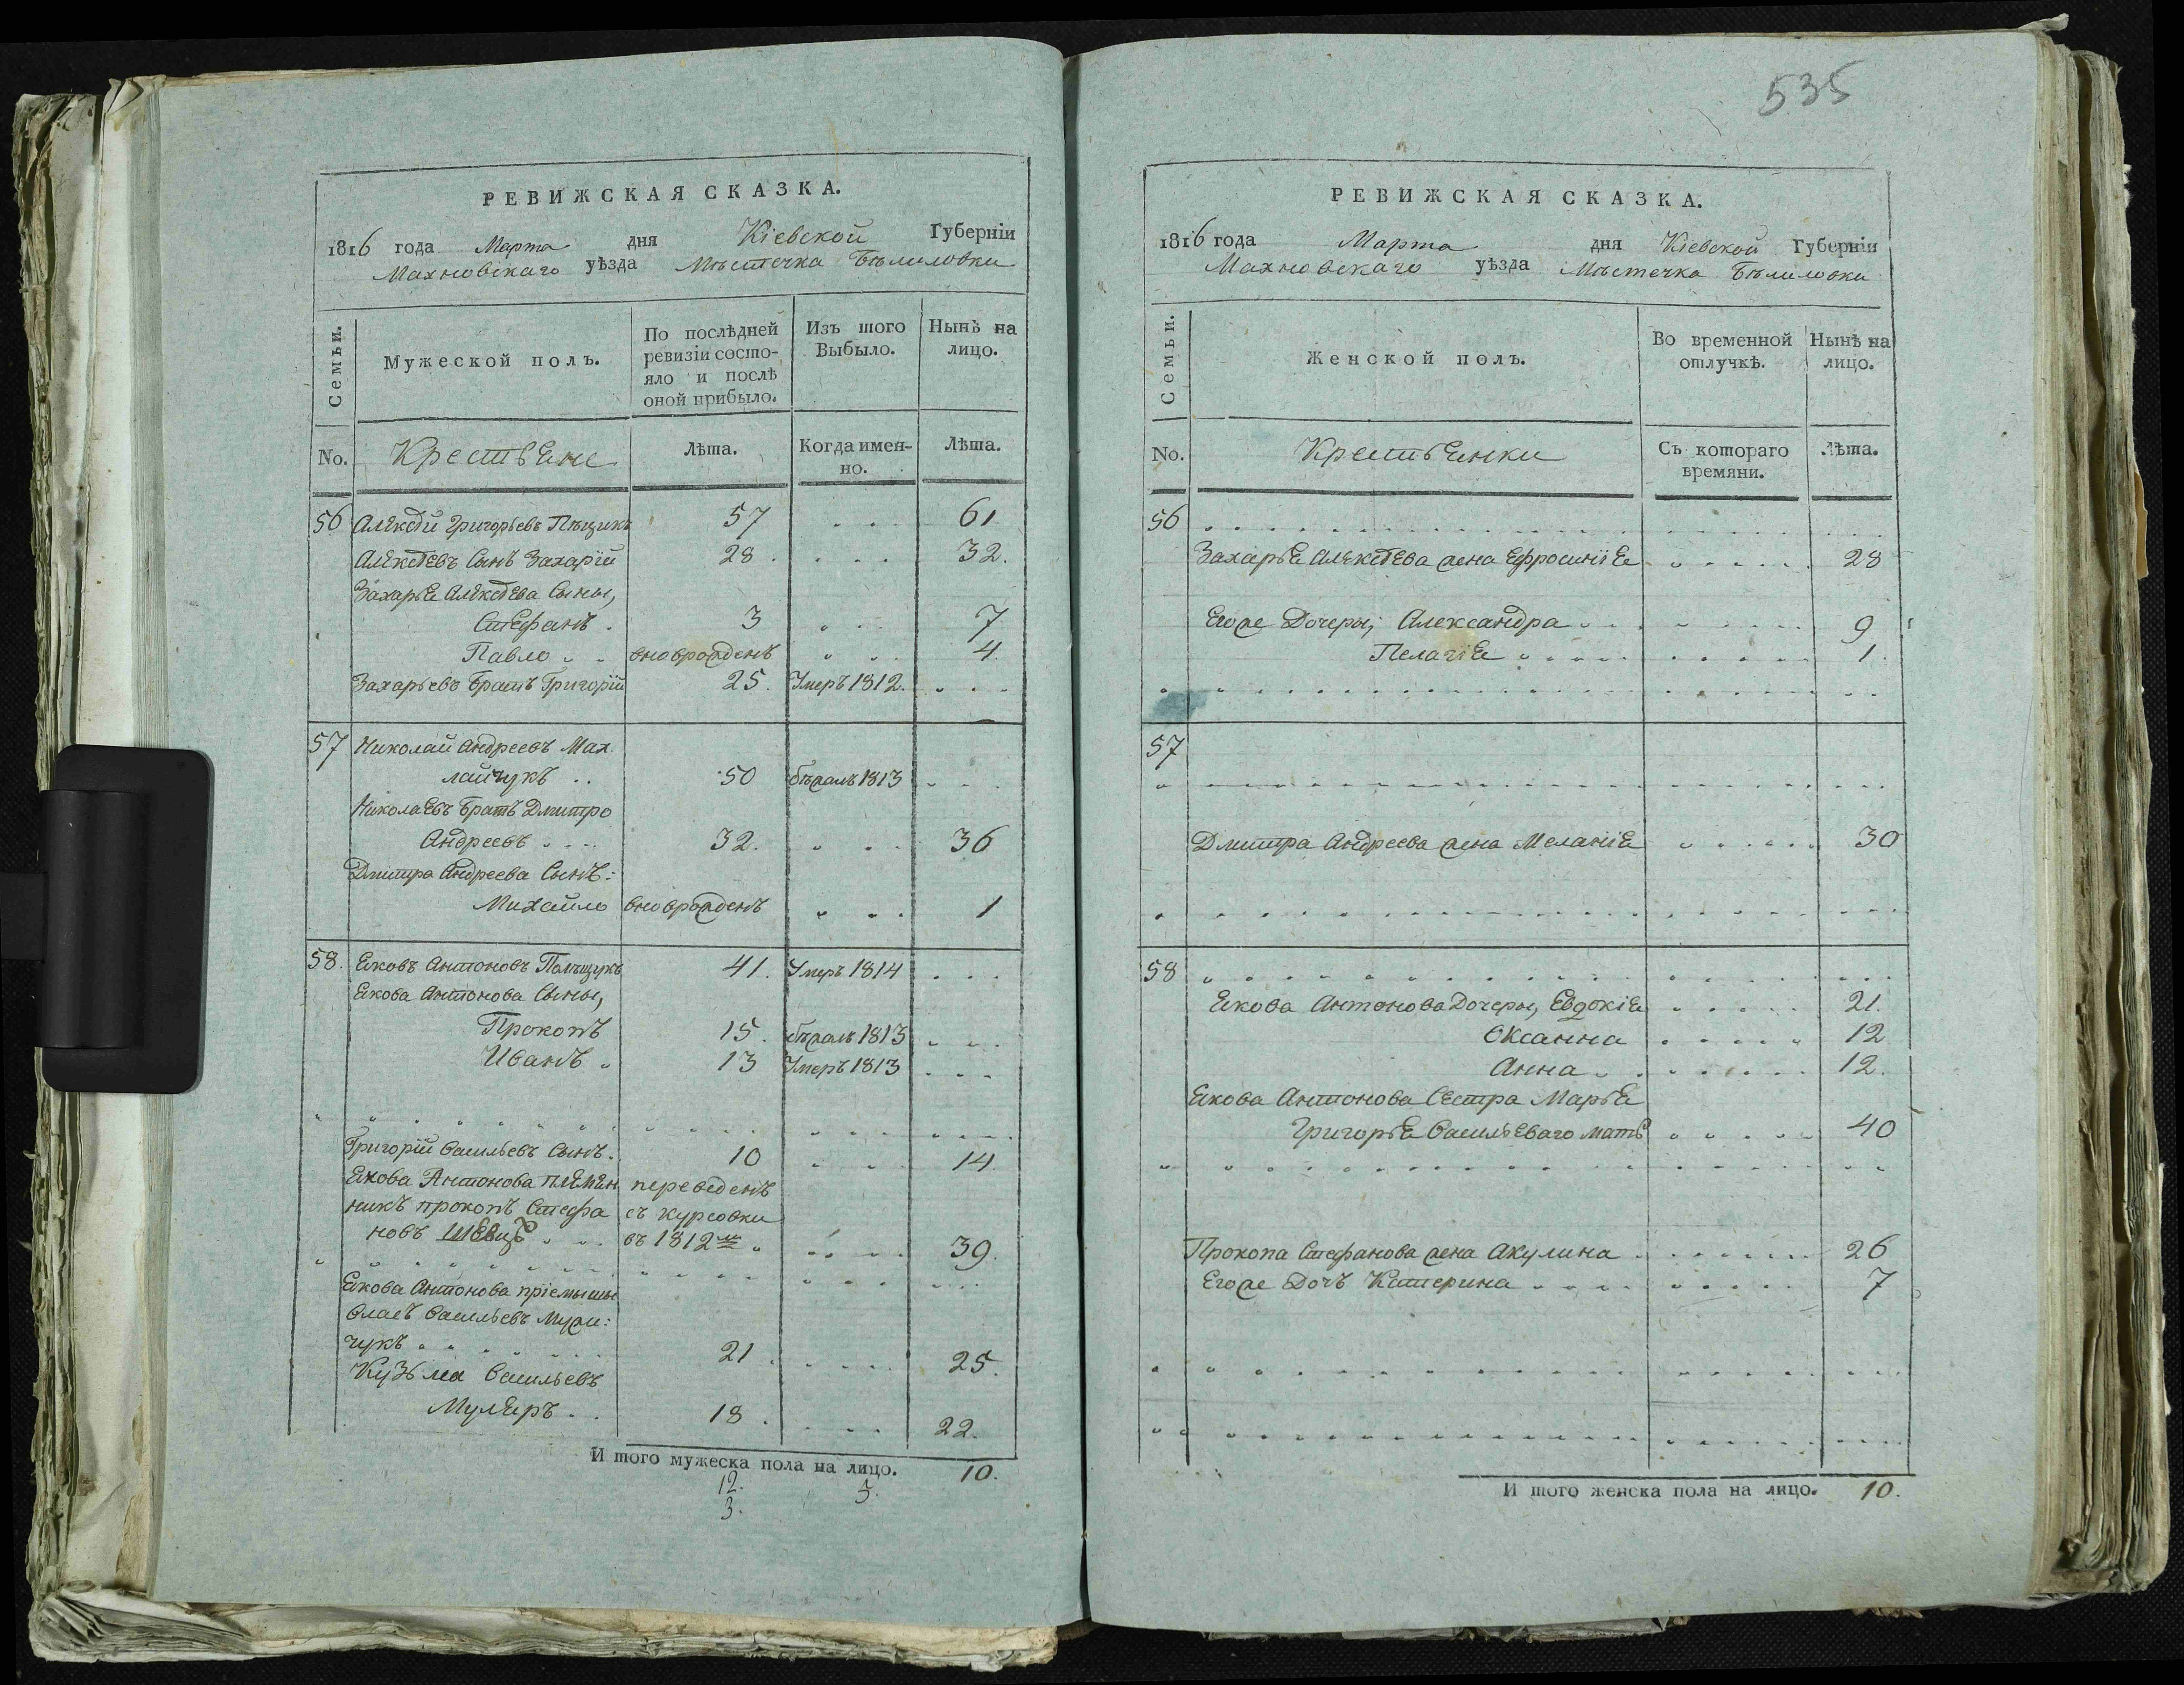 535
РЕВИЖСКАЯ СКАЗКА.
1816 года Марта дня Кіевской Губерніи
Махновскаго уѣзда Мѣстечка Бѣлиловки
Семьи.
Мужеской полъ.
По послѣдней ревизіи состо-
яло и послѣ оной прибыло.
Изъ того Выбыло.
Нынѣ на лицо.
No. Крестьяне Лѣта. Когда имен-
но. Лѣта.
56 Алексѣй Григорьевъ 57 61
Алексѣевъ Сынъ Захарій 28. 32.
Захарья Алексѣева Сыны,
Стефанъ. 3 7
Павло вноврожденъ 4.
Захарьевъ братъ Григорій 25. Умеръ 1812.
57 Николай Андреевъ Мах
лайчукъ 50 бѣжалъ 1813
Николаевъ братъ Дмитро
Андреевъ 32. 36
Дмитра Андреева Сынъ:
Михайло вновրожденъ 1
58. Яковъ Антоновъ Полѣщукъ 41. Умеръ 1814
Якова Антонова Сыны,
Прокопъ 15. бѣжалъ 1813
Иванъ 13 Умеръ 1813
Григорій Васильевъ Сынъ. 10 14.
Якова Антонова племян переведенъ
никъ прокопъ Стефа съ курсовки
новъ Швецъ въ 1812м 39.
Якова Антонова пріемыши
Власъ Васильевъ Мужи:
чукъ 21 25.
Кузьма Васильевъ
Муляръ 18. 22.
И того мужеска пола на лицо. 10.
12. 5.
3.
РЕВИЖСКАЯ СКАЗКА.
1816 года Марта дня Кіевской Губерніи
Махновскаго уѣзда Мѣстечка Бѣлиловки
Семьи.
Женской полъ.
Во временной отлучкѣ.
Нынѣ на лицо.
No. Крестьянки Съ котораго
времяни. Лѣта.
56
Захарья Алексѣева жена Ефросинія 28
Егоже Дочеры, Александра 9
Пелагія 1.
57
Дмитра Андреева жена Меланія 30
58
Якова Антонова Дочеры, Евдокія 21.
Оксанна 12
Анна 12.
Якова Антонова Сестра Марья
Григорья Васильеваго мать 40
Прокопа Стефанова жена Акулина 26
Егоже Дочъ Катерина 7
И того женска пола на лицо. 10.